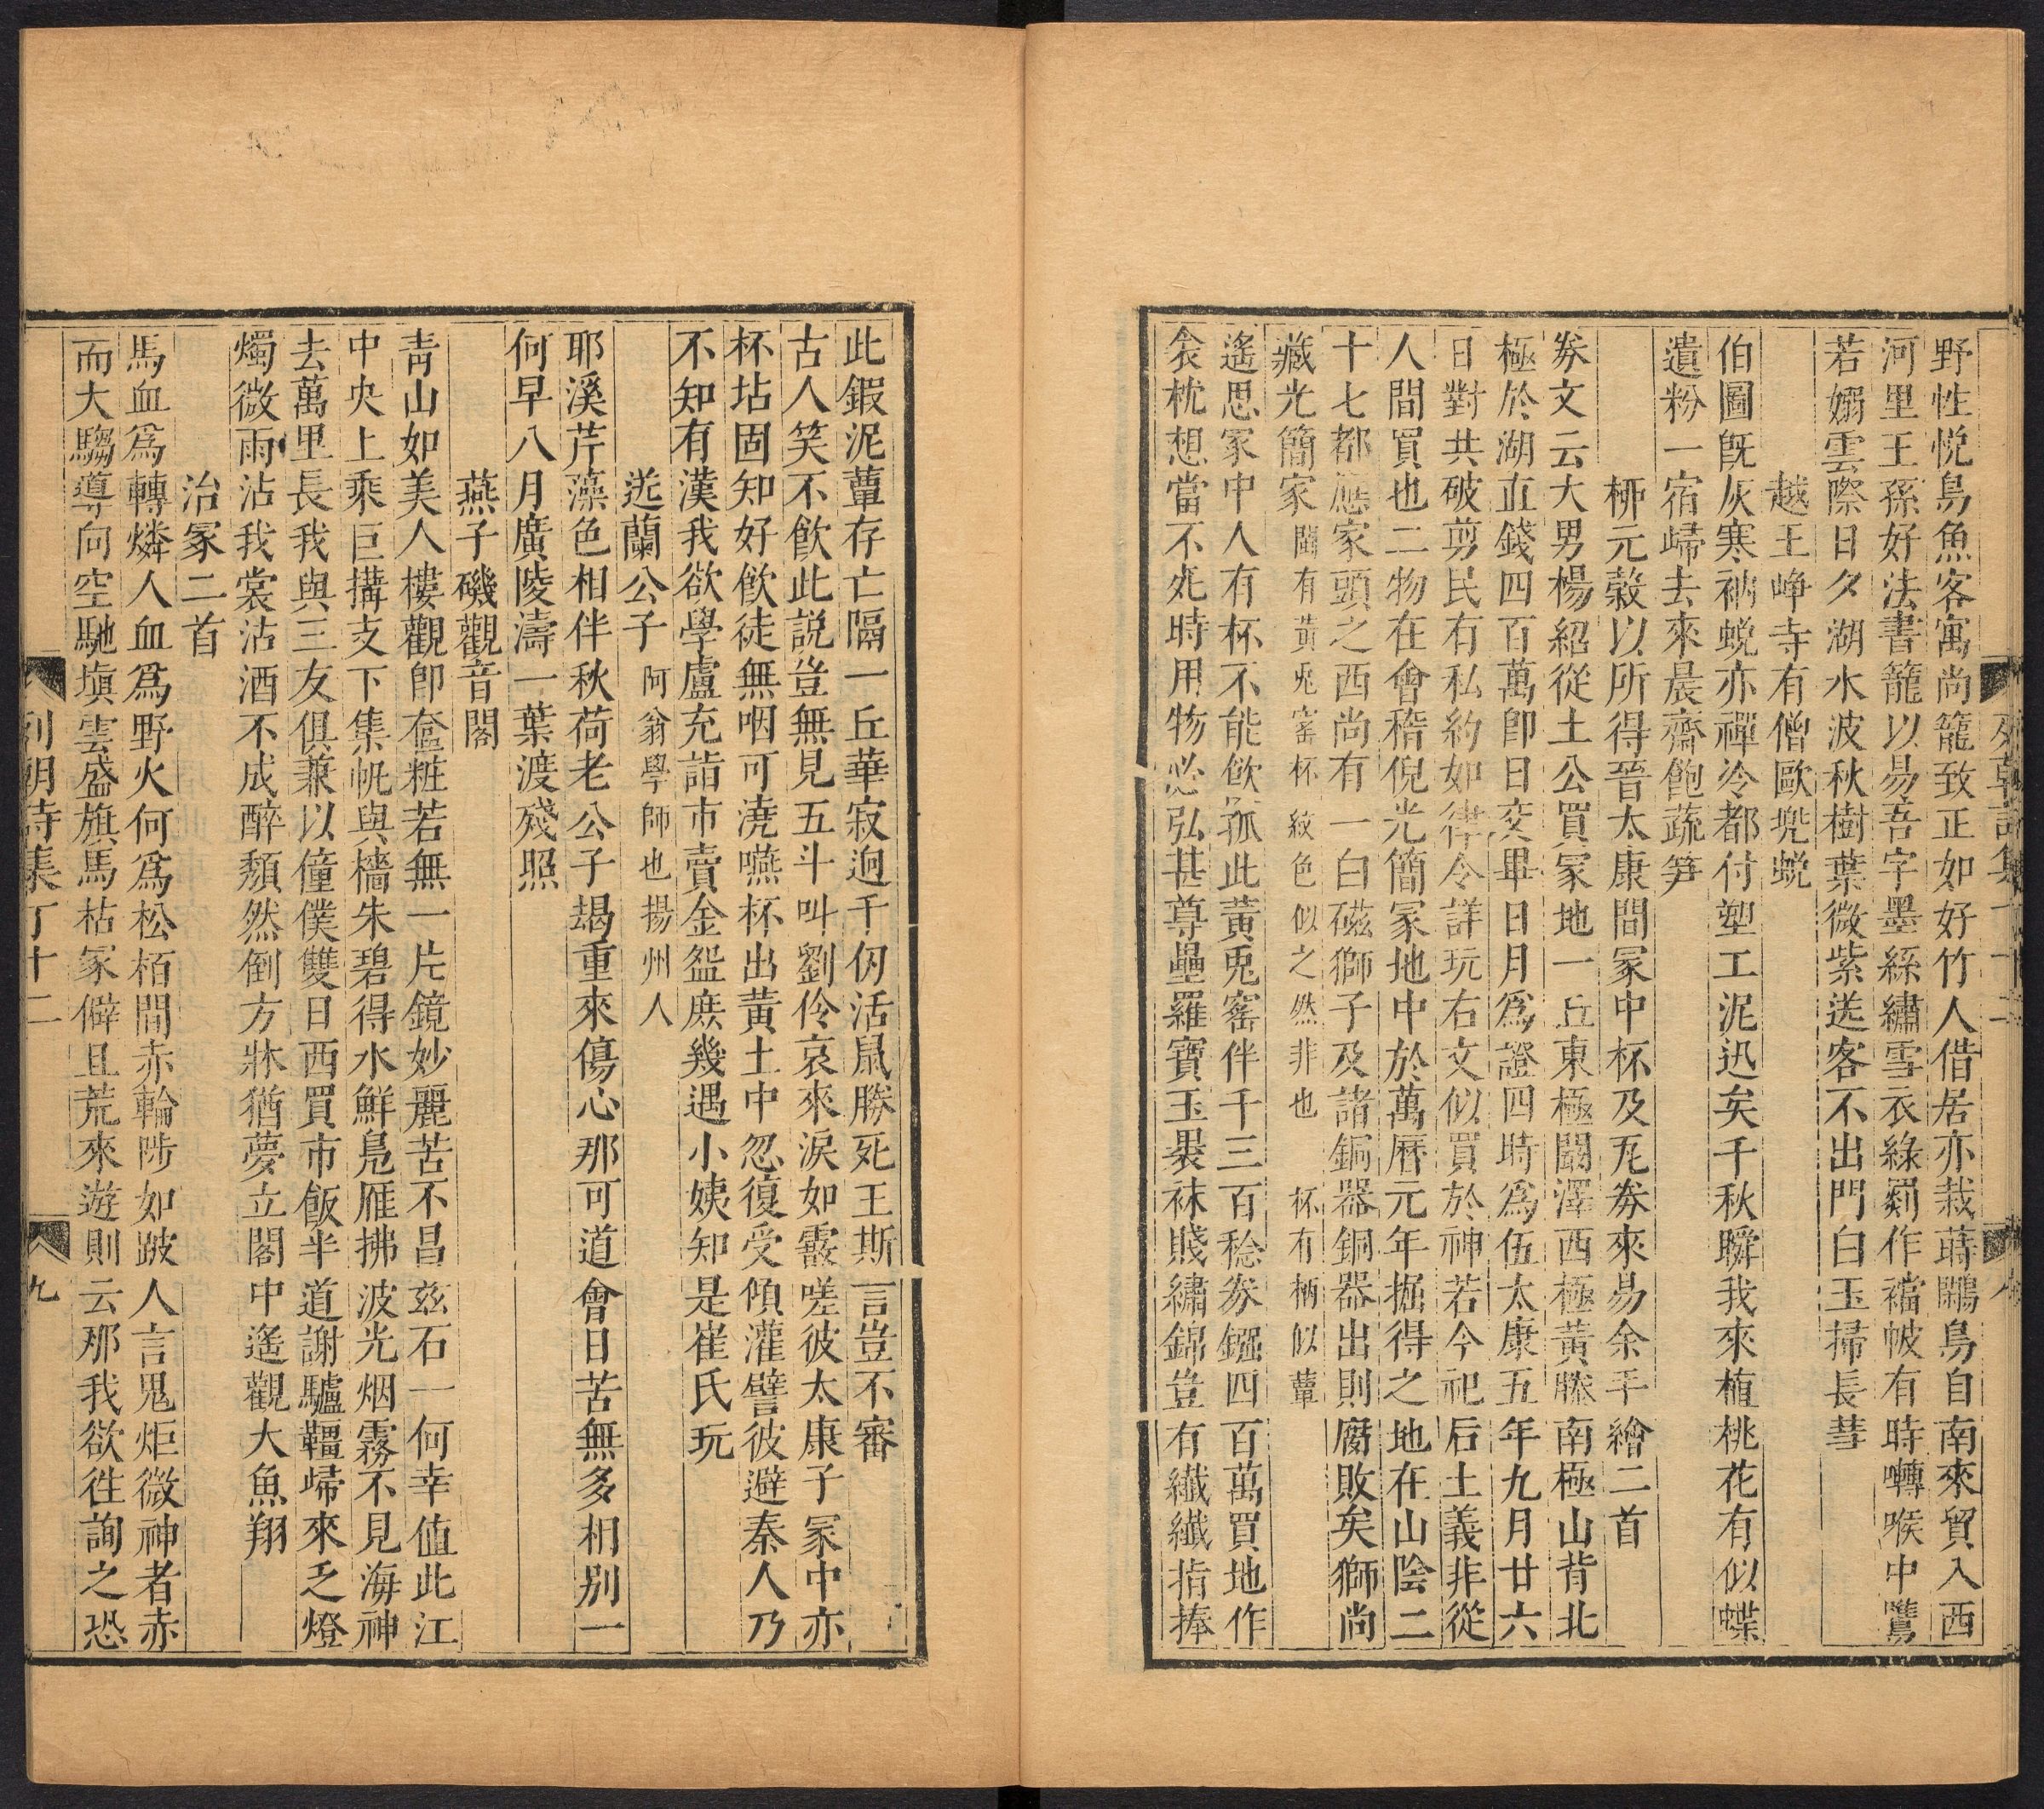 列朝詩集丁十二 八
野性悦鳥魚客寓尚籠致正如好竹人借居亦栽蒔鸜鳥自南來貿入西
河里王孫好法書籠以易吾字墨絲繡雪衣綠罽作襠帔有時囀喉中鷰
若嫋雲際日夕湖水波秋樹葉微紫送客不出門白玉掃長彗
越王崢寺有僧歐兜蛻
伯圖既灰寒衲蛻亦禪冷都付塑工泥迅矣千秋瞬我來植桃花有似蝶
遺粉一宿歸去來晨齋飽蔬笋
柳元穀以所得晉太康間冢中杯及瓦券來易余手繪二首
券文云大男楊紹從土公買冢地一丘東極闞澤西極黃滕南極山背北
極於湖直錢四百萬卽日交畢日月爲證四時爲伍太康五年九月廿六
日對共破剪民有私約如律令詳玩右文似買於神若今祀后土義非從
人間買也二物在會稽倪光簡冢地中於萬曆元年掘得之地在山陰二
十七都應家頭之西尚有一白磁獅子及諸銅器銅器出則腐敗矣獅尚
藏光簡家 閩有黃兎窰杯紋色似之然非也 杯有柄似蕈
遙思冢中人有杯不能飲孤此黃兎窰伴千三百稔券鏹四百萬買地作
衾枕想當不死時用物必弘甚尊罍羅寶玉裠袜賤繡錦豈有纖纖指捧
此鍜泥蕈存亡隔一丘華寂逈千仞活鼠勝死王斯言豈不審
古人笑不飲此説豈無見五斗叫劉伶哀來淚如霰嗟彼太康子冢中亦
杯坫固知好飲徒無咽可澆嚥杯出黃土中忽復受傾灌譬彼避秦人乃
不知有漢我欲學盧充詣市賣金盌庶幾遇小姨知是崔氏玩
送蘭公子 阿翁學師也揚州人
耶溪芹藻色相伴秋荷老公子朅重來傷心那可道會日苦無多相別一
何早八月廣陵濤一葉渡殘照
燕子磯觀音閣
青山如美人樓觀卽奩粧若無一片鏡妙麗苦不昌玆石一何幸值此江
中央上乘巨搆支下集帆與檣朱碧得水鮮鳧雁拂波光烟霧不見海神
去萬里長我與三友俱兼以僮僕雙日西買市飯半道謝驢韁歸來乏燈
燭微雨沾我裳沽酒不成醉頽然倒方牀猶夢立閣中遙觀大魚翔
治冢二首
馬血爲轉燐人血爲野火何爲松栢間赤輪陟如跛人言鬼炬微神者赤
而大騶導向空馳塡雲盛旗馬枯冢僻且荒來遊則云那我欲徃詢之恐
列朝詩集丁十二 九